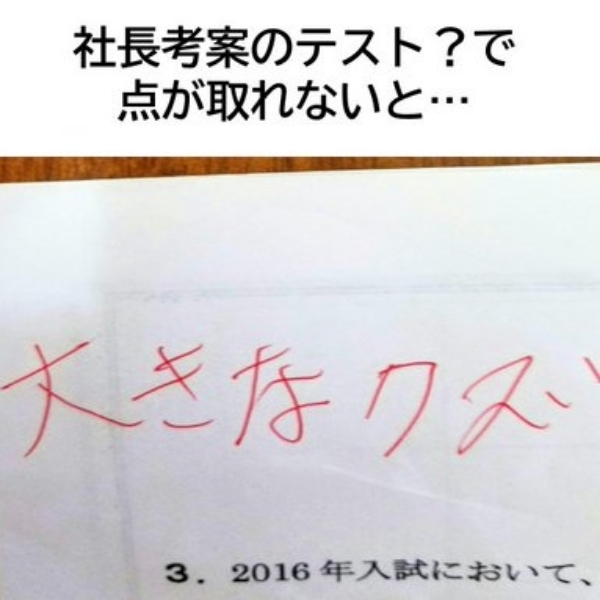 社長考案のテスト？で
点が取れないと…
大きなクズ
3. 2016年入試において、